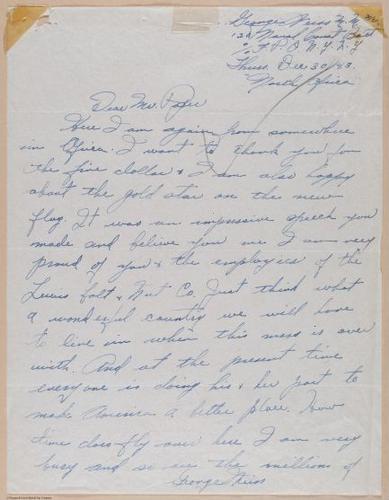 George Weiss M.M.
120 Naval Const. Batt
% F.P.O. N.Y. N.Y
Thurs. Dec 30/43.
North Africa
Dear Mr. Paper
Here I am again from somewhere
in Africa. I want to thank you for
the five dollar & I am also happy
about the gold star on the new
flag. It was an impressive speech you
made and believe you me I am very
proud of you & the employees of the
Lewis Bolt & Nut Co. Just think what
a wonderful country we will have
to live in when this mess is over
with. And at the present time
everyone is doing his & her part to
make America a better place. How
time does fly over here I am very
busy and so are the millions of
George Weiss